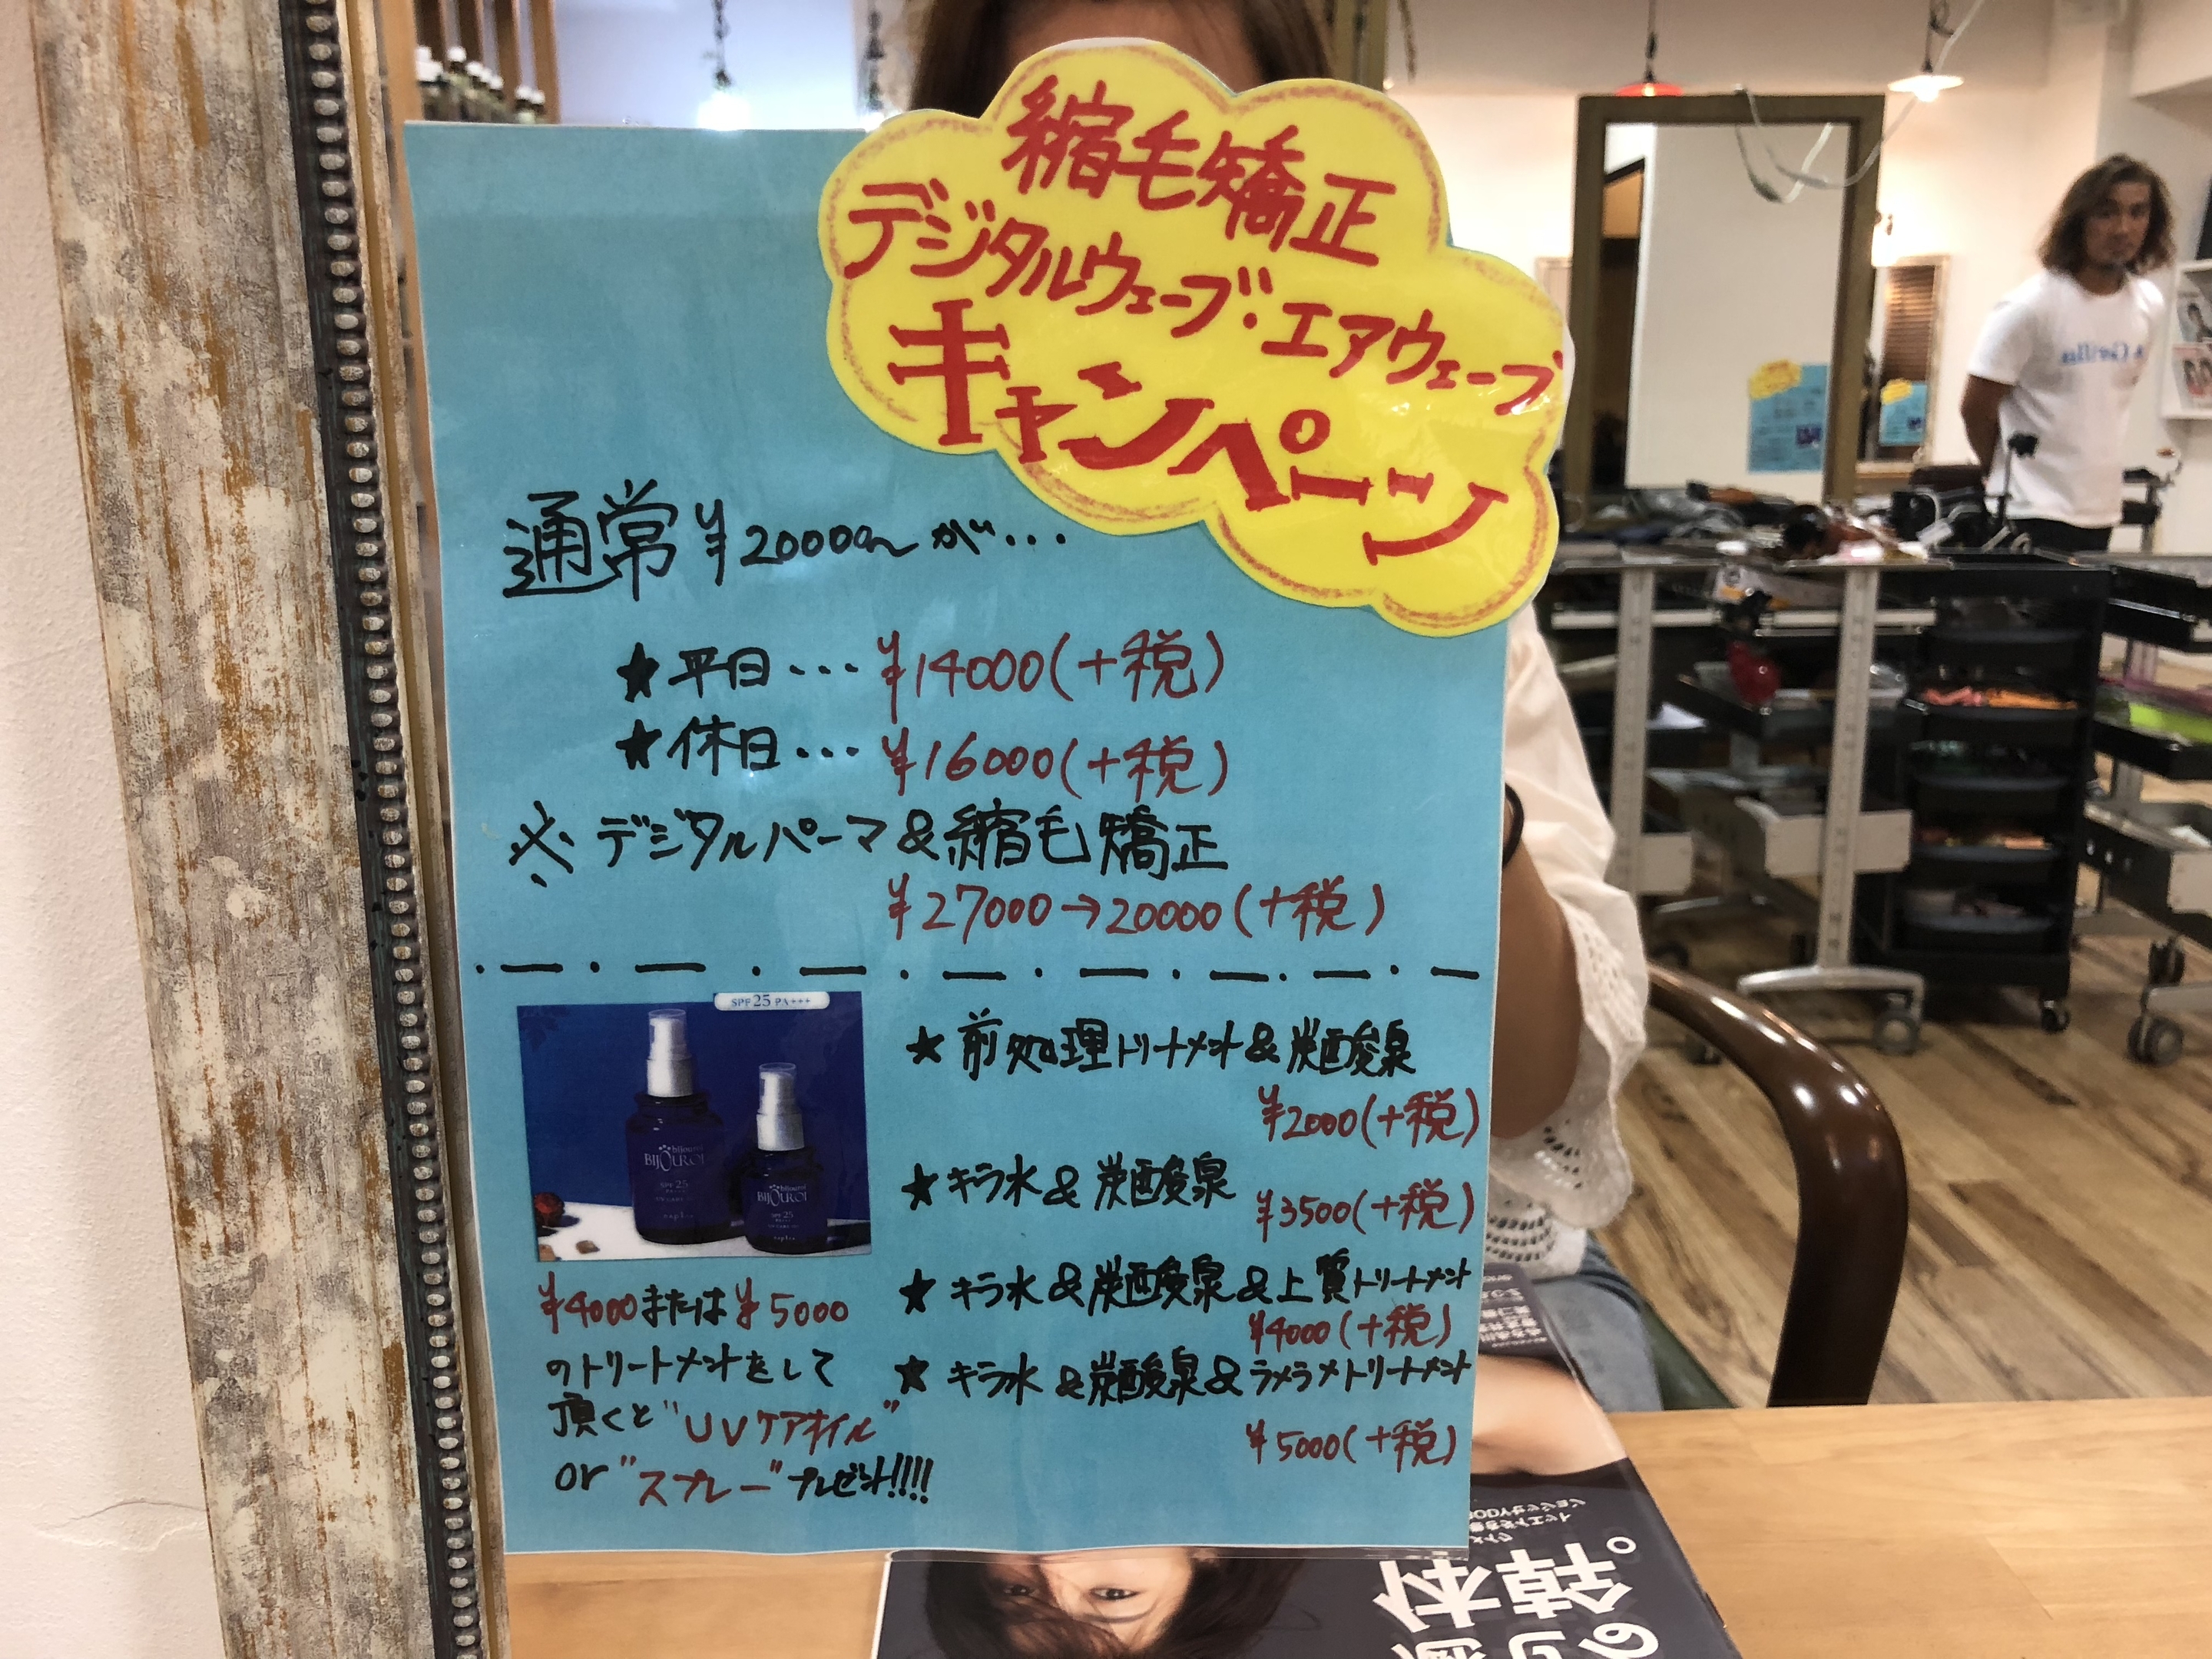 縮毛矯正
デジタルウェーブ・エアウェーブ
キャンペーン
通常¥20000〜が・・・
★平日・・・¥14000(+税)
★休日・・・¥16000(+税)
※デジタルパーマ&縮毛矯正
¥27000→20000(+税)
SPF25 PA+++
BIJOUROI
SPF 25
BIJOUROI
SPF 25
¥4000または¥5000
のトリートメントをして
頂くと"UVケアオイル"
or "スプレー"プレゼント!!!!
★前処理トリートメント&炭酸泉
¥2000(+税)
★キラ水&炭酸泉
¥3500(+税)
★キラ水&炭酸泉&上質トリートメント
¥4000(+税)
★キラ水&炭酸泉&ラメラメトリートメント
¥5000(+税)